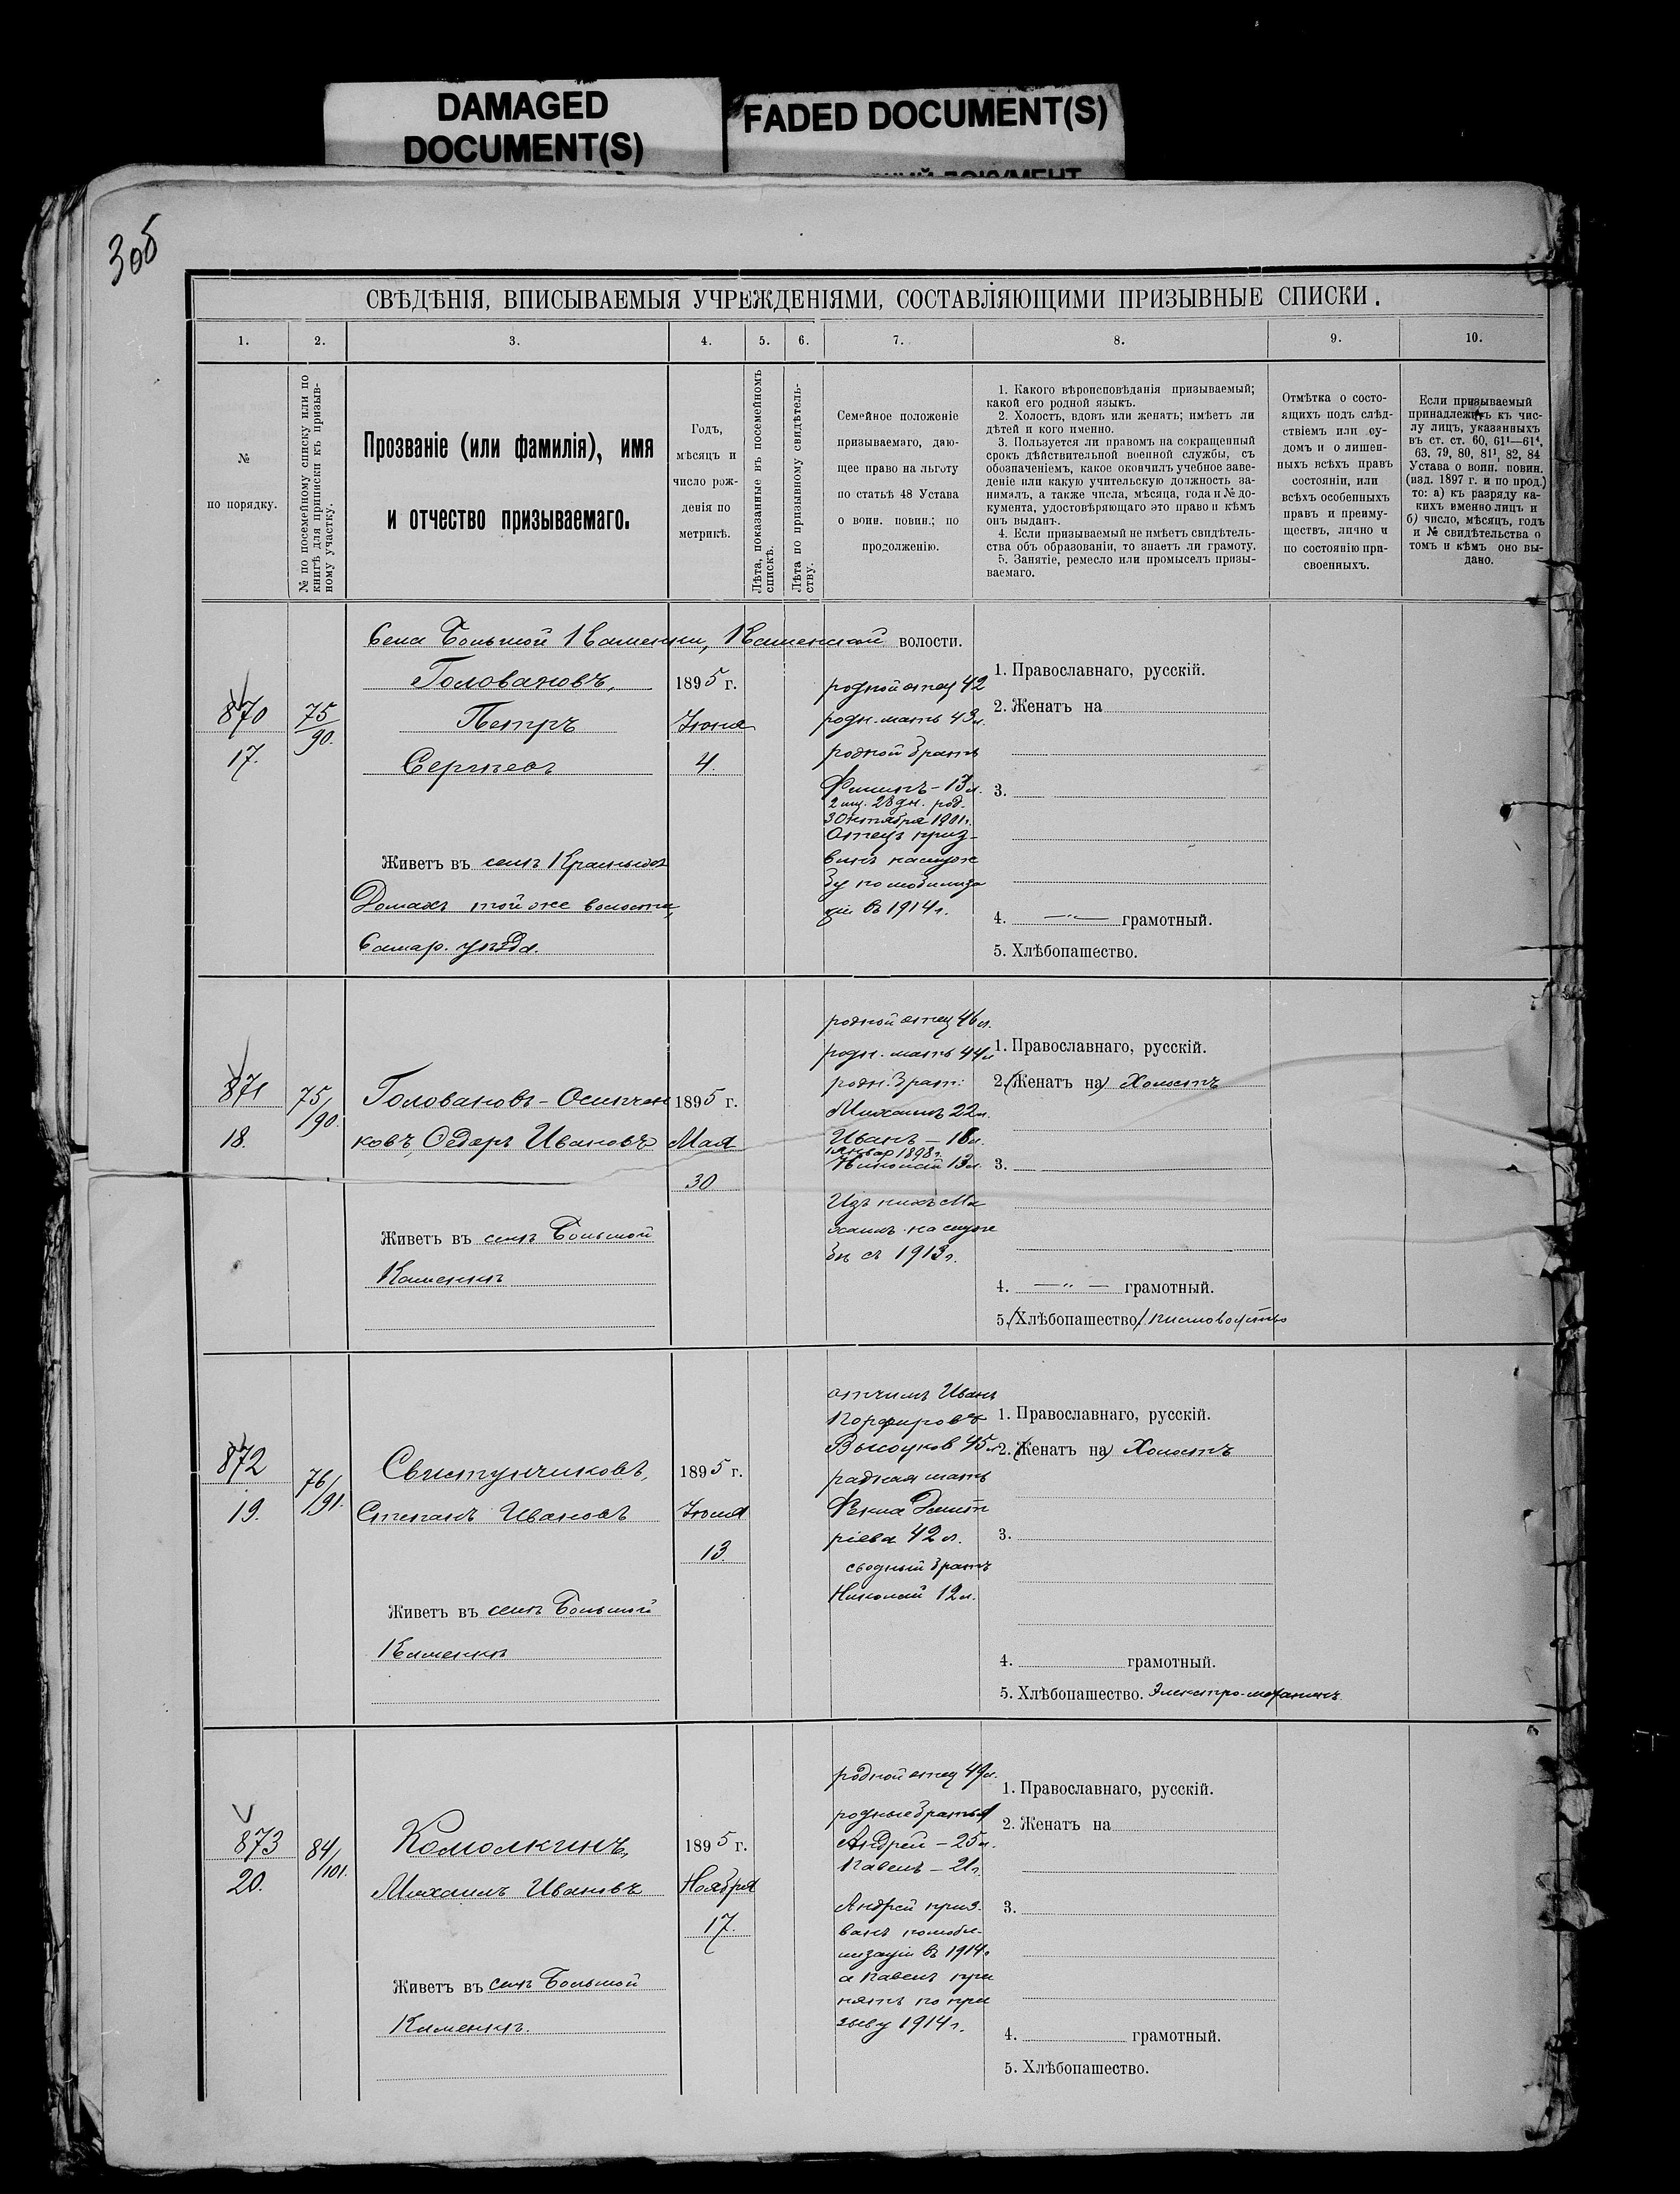 DAMAGED
DOCUMENT(S)
FADED DOCUMENT(S)
ДОКУМЕНТ
305
СВѢДѢНІЯ, ВПИСЫВАЕМЫЯ УЧРЕЖДЕНІЯМИ, СОСТАВЛЯЮЩИМИ ПРИЗЫВНЫЕ СПИСКИ.
1. 2. 3. 4. 5. 6. 7. 8. 9. 10.
№
по порядку.
№ по посемейному списку или по
книгѣ для приписки къ призыв-
ному участку.
Прозваніе (или фамилія), имя
и отчество призываемаго.
Годъ,
мѣсяцъ и
число рож-
денія по
метрикѣ.
Лѣта, показанные въ посемейномъ
спискѣ.
Лѣта по призывному свидѣтель-
ству.
Семейное положеніе
призываемаго, даю-
щее право на льготу
по статьѣ 48 Устава
о воин. повин.; по
продолженію.
1. Какого вѣроисповѣданія призываемый;
какой его родной языкъ.
2. Холостъ, вдовъ или женатъ; имѣетъ ли
дѣтей и кого именно.
3. Пользуется ли правомъ на сокращенный
срокъ дѣйствительной военной службы, съ
обозначеніемъ, какое окончилъ учебное заве-
деніе или какую учительскую должность за-
нималъ, а также числа, мѣсяца, года и № до-
кумента, удостовѣряющаго это право и кѣмъ
онъ выданъ.
4. Если призываемый не имѣетъ свидѣтель-
ства объ образованіи, то знаетъ ли грамоту.
5. Занятіе, ремесло или промыселъ призы-
ваемаго.
Отмѣтка о состо-
ящихъ подъ слѣд-
ствіемъ или су-
домъ и о лишен-
ныхъ всѣхъ правъ
состоянія, или
всѣхъ особенныхъ
правъ и преиму-
ществъ, лично и
по состоянію при-
своенныхъ.
Если призываемый
принадлежитъ къ чис-
лу лицъ, указанныхъ
въ ст. ст. 60, 61¹—61⁴,
63, 79, 80, 81¹, 82, 84
Устава о воин. повин.
(изд. 1897 г. и по прод.)
то: а) къ разряду ка-
кихъ именно лицъ и
б) число, мѣсяцъ, годъ
и № свидѣтельства о
томъ и кѣмъ оно вы-
дано.
Села Большой Каменки, Каменской волости.
870
17.
75/90.
Головановъ,
Петръ
Сергѣевъ
Живетъ въ селѣ Красныхъ
Домахъ той же волости,
Самар. уѣзда.
1895 г.
Іюня
4.
родной отец 42
родн. мать 43 л.
родной братъ
Филипъ – 13 л.
2 мц. 28 дн. род.
3 Октября 1901 г.
Отецъ приз-
ванъ на служ
бу по мобилиза
ціи въ 1914 г.
1. Православнаго, русскій.
2. Женатъ на
3.
4. —"— грамотный.
5. Хлѣбопашество.
871
18.
75/90.
Головановъ-Осипчен
ковъ, Ѳедоръ Ивановъ
Живетъ въ селѣ Большой
Каменкѣ
1895 г.
Мая
30
родной отец 46 л.
родн. мать 44 л.
родн. брат:
Михаилъ 22 л.
Иванъ – 16 л.
1 Январ 1898 г.
Николай 13 л.
Изъ нихъ Ми
хаилъ на служ
бѣ съ 1913 г.
1. Православнаго, русскій.
2. (Женатъ на) Холостъ
3.
4. —"— грамотный.
5. (Хлѣбопашество) письмоводство
872
19.
76/91.
Свистунчиковъ,
Степанъ Ивановъ
Живетъ въ селѣ Большой
Каменкѣ
1895 г.
Іюля
13
отчимъ Иванъ
Порфировъ
Высоцков 45 л.
родная мать
Ѳекла Дмит
ріева 42 л.
сводный братъ
Николай 12 л.
1. Православнаго, русскій.
2. (Женатъ на) Холостъ
3.
4. грамотный.
5. Хлѣбопашество. Электро-механикъ
873
20.
84/101.
Комолкинъ,
Михаилъ Ивановъ
Живетъ въ селѣ Большой
Каменкѣ.
1895 г.
Ноября
17.
родной отец 49 л.
родные братья
Андрей – 25 л.
Павелъ – 21 г.
Андрей приз.
ванъ по моби-
лизаціи въ 1914 г.
а Павелъ при
нятъ по при
зыву 1914 г.
1. Православнаго, русскій.
2. Женатъ на
3.
4. грамотный.
5. Хлѣбопашество.